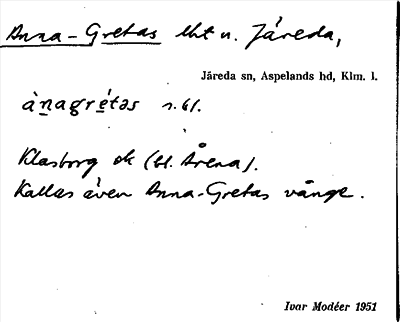 Anna-Gretas lht u. Járeda,
Järeda sn, Aspelands hd, Klm. l.
ànagrétəs r. 61.
Klasborg ok (bl. Årena).
Kallas även Anna-Gretas vånge.
Ivar Modéer 1951